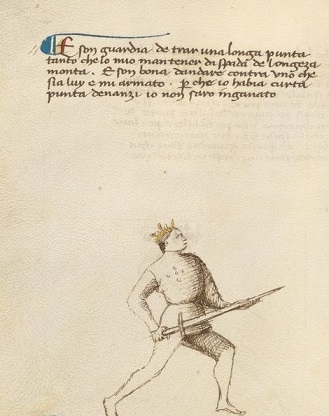 Io son guardia de trar una longa punta
tanto che lo mio mantener di spada de longeza
monta. E son bona dandare contra uno che
sia luy e mi armato. p che io habia curta
punta denanzi io non saro inganato